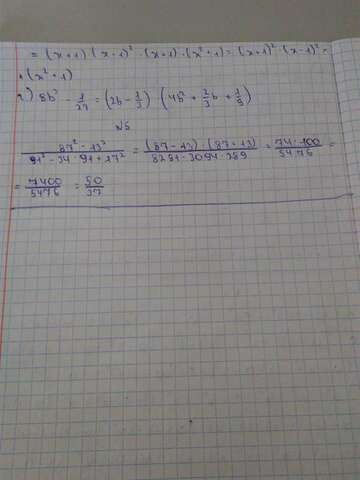 = (x+1)(x-1)²·(x+1)·(x²+1) = (x+1)²·(x-1)²·
·(x²+1)
2) 8b³ - 1/27 = (2b - 1/3) (4b² + 2/3 b + 1/9)
№5
(87² - 13²)/(91² - 34·91 + 17²) = ((87-13)·(87+13))/(8281-3094+289) = (74·100)/5476 =
= 7400/5476 = 50/37